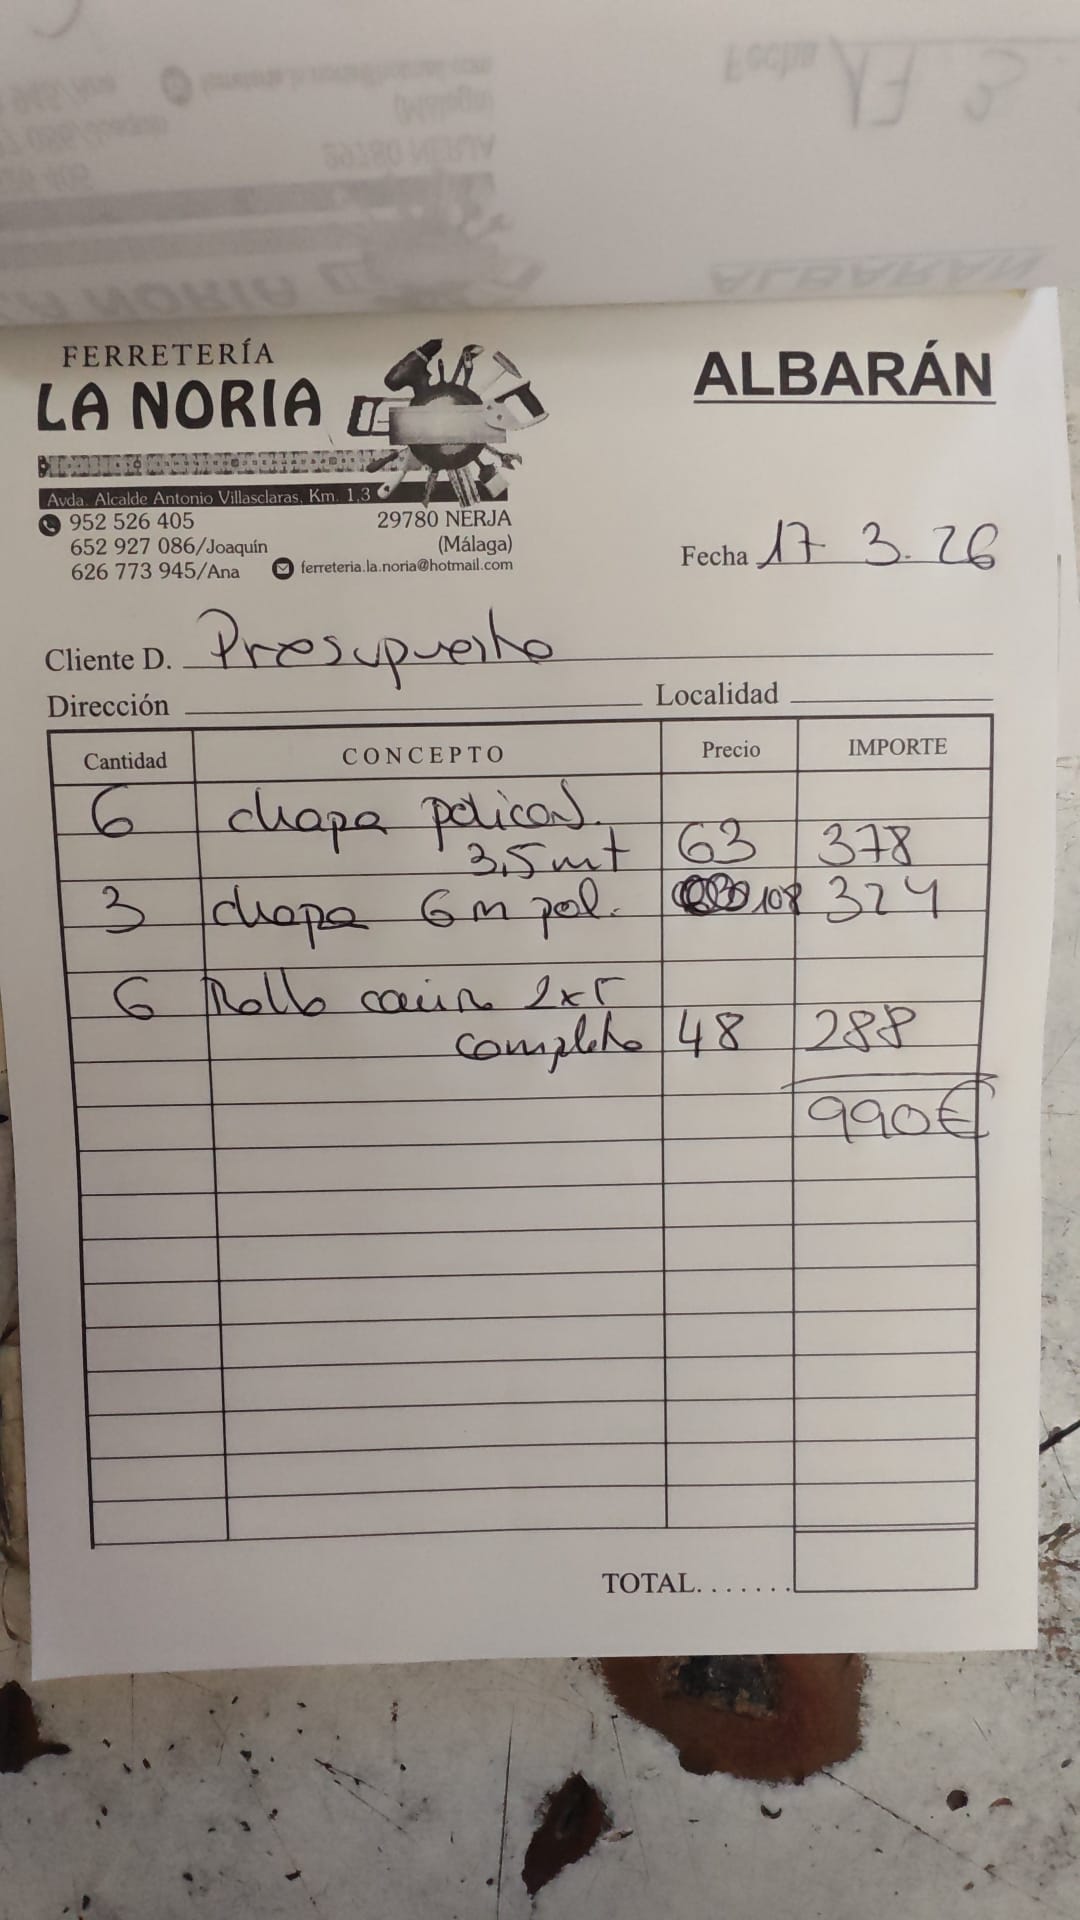 FERRETERÍA
LA NORIA
ALBARÁN
Avda. Alcalde Antonio Villasclaras, Km. 1,3
952 526 405 29780 NERJA
652 927 086/Joaquín (Málaga)
626 773 945/Ana ferreteria.la.noria@hotmail.com
Fecha 17 3. 26
Cliente D. Presupuesto
Dirección Localidad
Cantidad CONCEPTO Precio IMPORTE
6 chapa policar.
3,5 mt 63 378
3 chapa 6 m pol. 108 324
6 Rollo 2x5
completo 48 288
990€
TOTAL.......